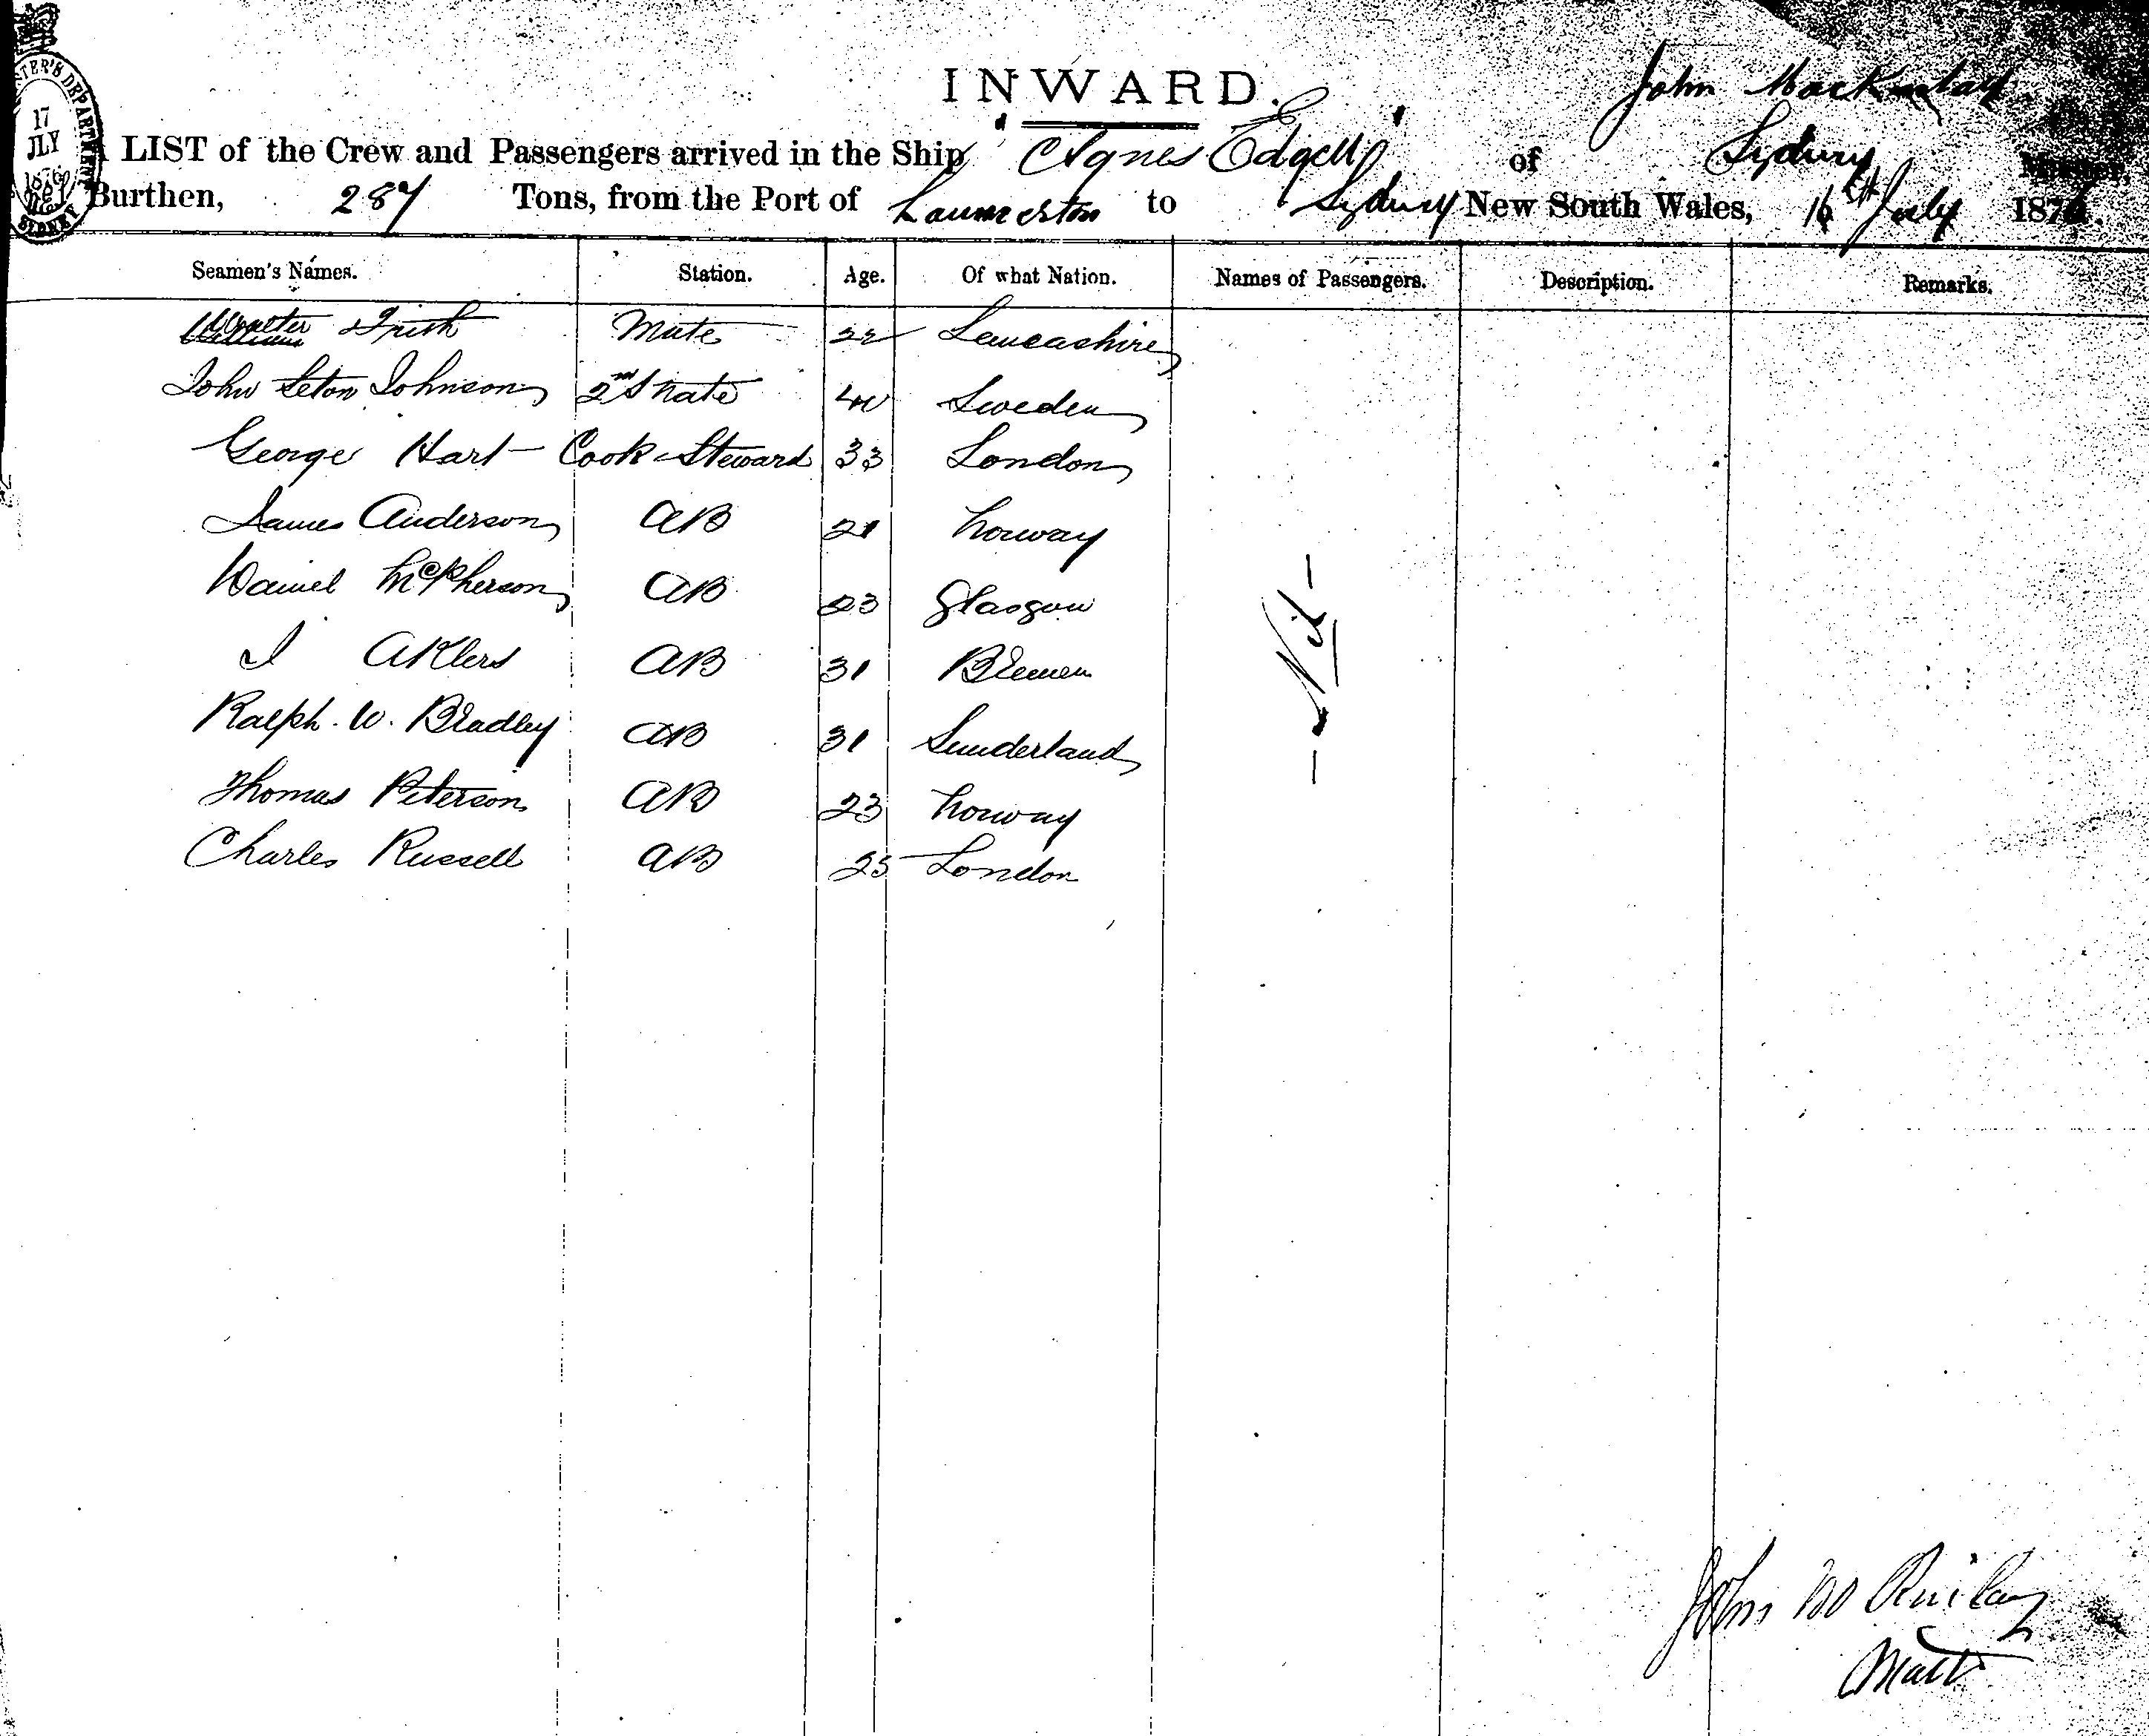 INWARD.
John MacKinlay
TER'S DEPARTMENT
17
JLY
1876
SIDNEY
LIST of the Crew and Passengers arrived in the Ship Agnes Edgell of Sydney Master,
Burthen, 287 Tons, from the Port of Launceston to Sydney New South Wales, 16th July 1876.
Seamen's Names. Station. Age. Of what Nation. Names of Passengers. Description. Remarks.
Walter Frith Mate 22 Lancashire
John Seton Johnson 2nd Mate 40 Sweden
George Hart Cook Steward 33 London
James Anderson AB 21 Norway
Daniel McPherson AB 23 Glasgow
I Aklers AB 31 Bremen
Ralph. W. Bradley AB 31 Sunderland
Thomas Peterson AB 23 Norway
Charles Russell AB 25 London
- Nil -
John